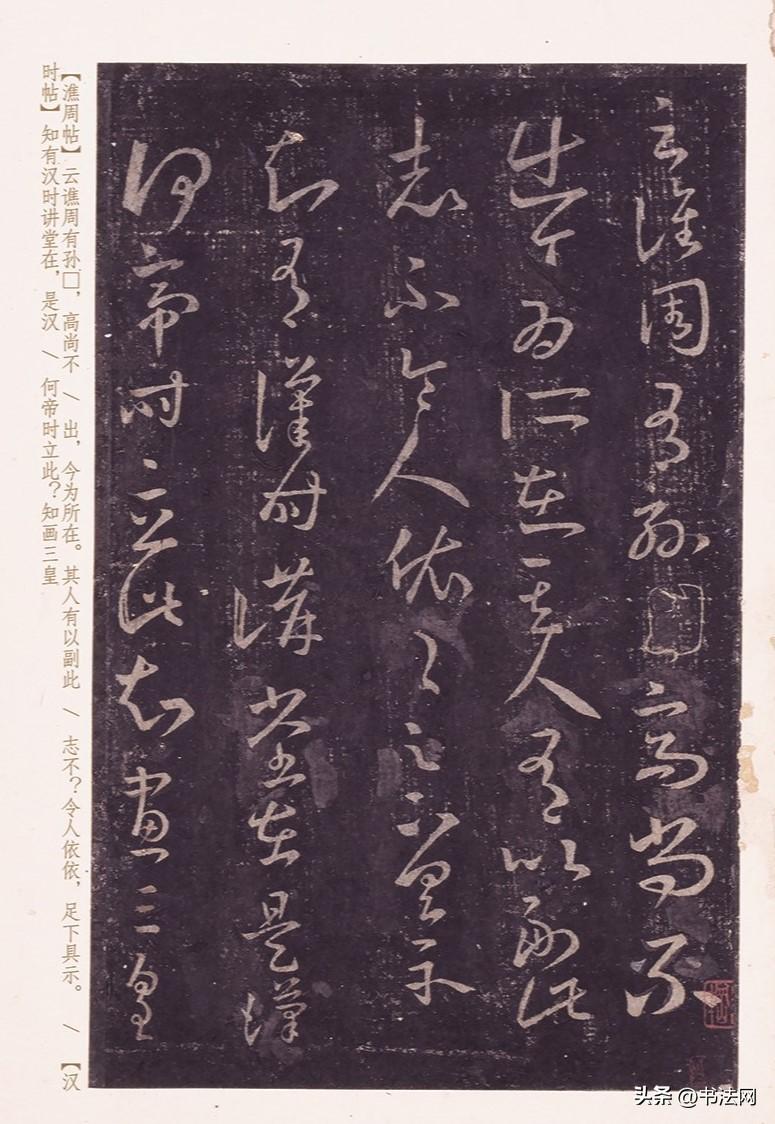 云譙周有孫□高尚不
出今為所在其人有以副此
志不令人依依足下具示
知有漢時講堂在是漢
何帝時立此知畫三皇
【潐周帖】云谯周有孙□，高尚不 \ 出，今为所在。其人有以副此 \ 志不？令人依依，足下具示。 \ 【汉
时帖】知有汉时讲堂在，是汉 \ 何帝时立此？知画三皇
头条 @书法网